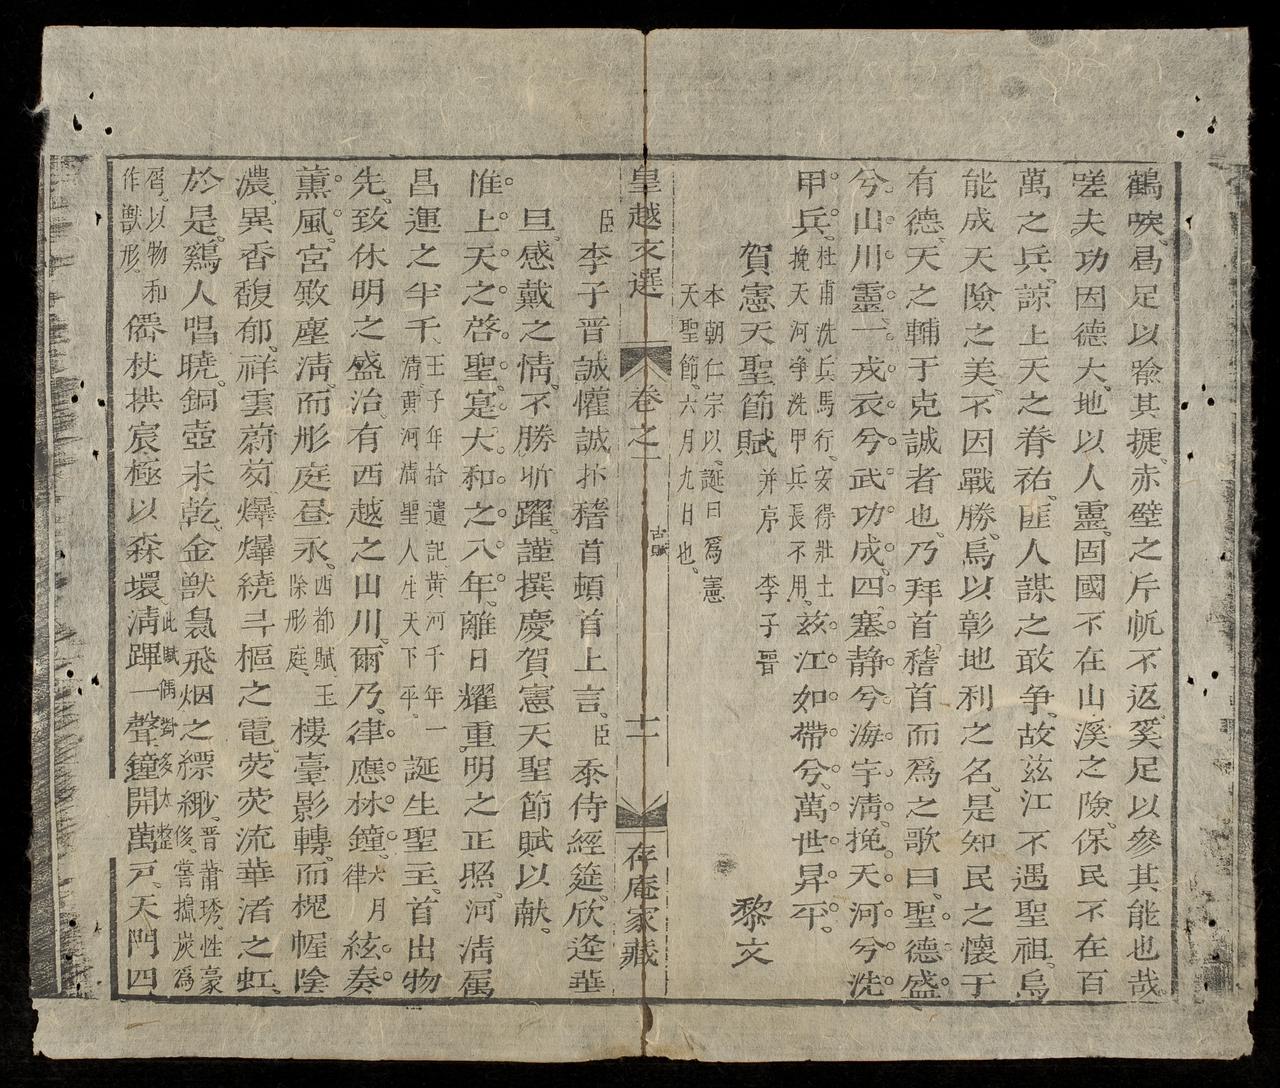 鶴唳、曷足以喩其捷、赤壁之斥帆不返、奚足以參其能也哉。
嗟夫、功因德大、地以人靈、固國不在山溪之險、保民不在百
萬之兵、諒上天之眷祐、匪人謀之敢争、故兹江不遇聖祖、烏
能成天險之美、不因戰勝、烏以彰地利之名、是知民之懷于
有德、天之輔于克誠者也、乃拜首稽首而爲之歌曰、聖德盛
兮山川靈、一戎衣兮武功成、四塞静兮海宇清、挽天河兮洗
甲兵、杜甫洗兵馬行、安得壯士
挽天河、净洗甲兵長不用、兹江如帶兮、萬世昇平。
賀憲天聖節賦 并序 李子晉 黎文
本朝仁宗以誕日爲憲
天聖節、六月九日也、
皇越文選 卷之一 古賦 十一 存庵家藏
臣李子晉誠懽誠忭稽首頓首上言、臣忝侍經筵、欣逢華
旦、感戴之情、不勝昕躍、謹撰慶賀憲天聖節賦以献、
惟上天之啓聖、寔大和之八年、離日耀重明之正照、河清屬
昌運之半千、王子年拾遺記黄河千年一
清、黄河清聖人生天下平、誕生聖主、首出物
先、致休明之盛治、有西越之山川、爾乃、律應林鐘、六月
律 絃奏
薫風、宮殿塵清、而彤庭昼永、西都賦、玉
除彤庭、樓臺影轉、而槐幄陰
濃、異香馥郁、祥雲蔚芴、爆爆繞斗樞之電、荧荧流華渚之虹、
於是、鷄人唱曉、銅壺未乾、金獣裊飛烟之縹緲、晋羊琇、性豪
侈、嘗搗炭爲
屑、以物和
作獣形、僊杖拱宸極以森環、此賦偶對多太整 清蹕一聲、鐘開萬戸、天門四